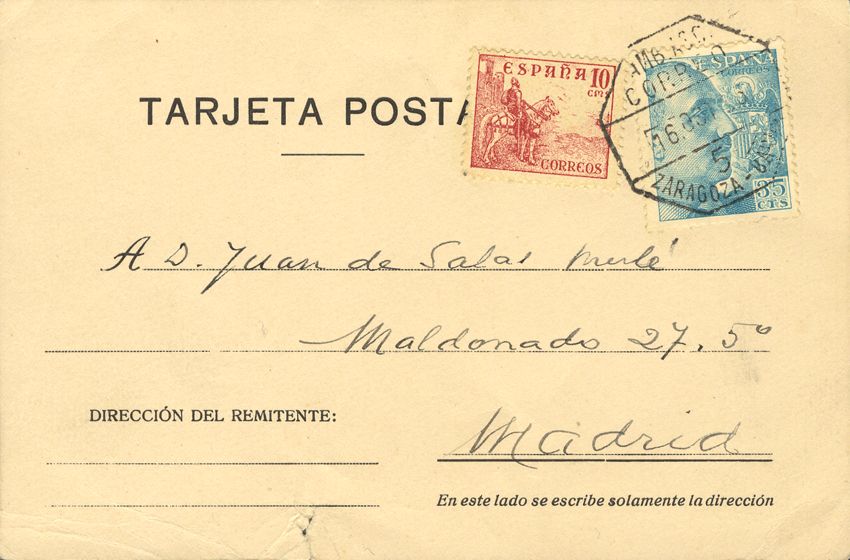 TARJETA POSTA
ESPAÑA 10
cm.
CORREOS
ESPAÑA
CORREOS
35
CTS
CORREO
16
5
ZARAGOZA
A D. Juan de Salas Merlé
Maldonado 27, 5º
Madrid
DIRECCIÓN DEL REMITENTE:
En este lado se escribe solamente la dirección